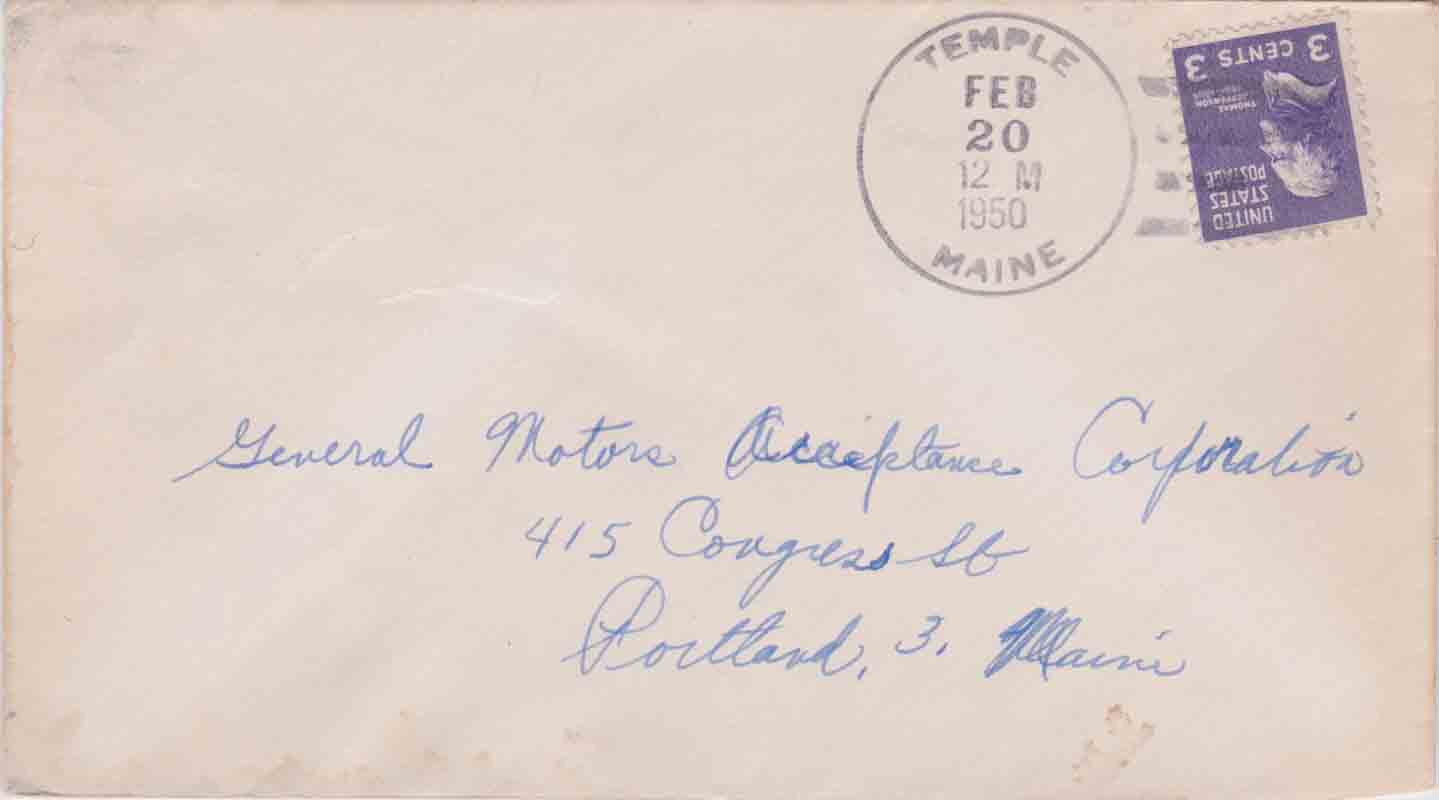 TEMPLE
FEB
20
12 M
1950
MAINE
3 CENTS 3
THOMAS
JEFFERSON
UNITED
STATES
POSTAGE
General Motors Acceptance Corporation
415 Congress St
Portland, 3. Maine